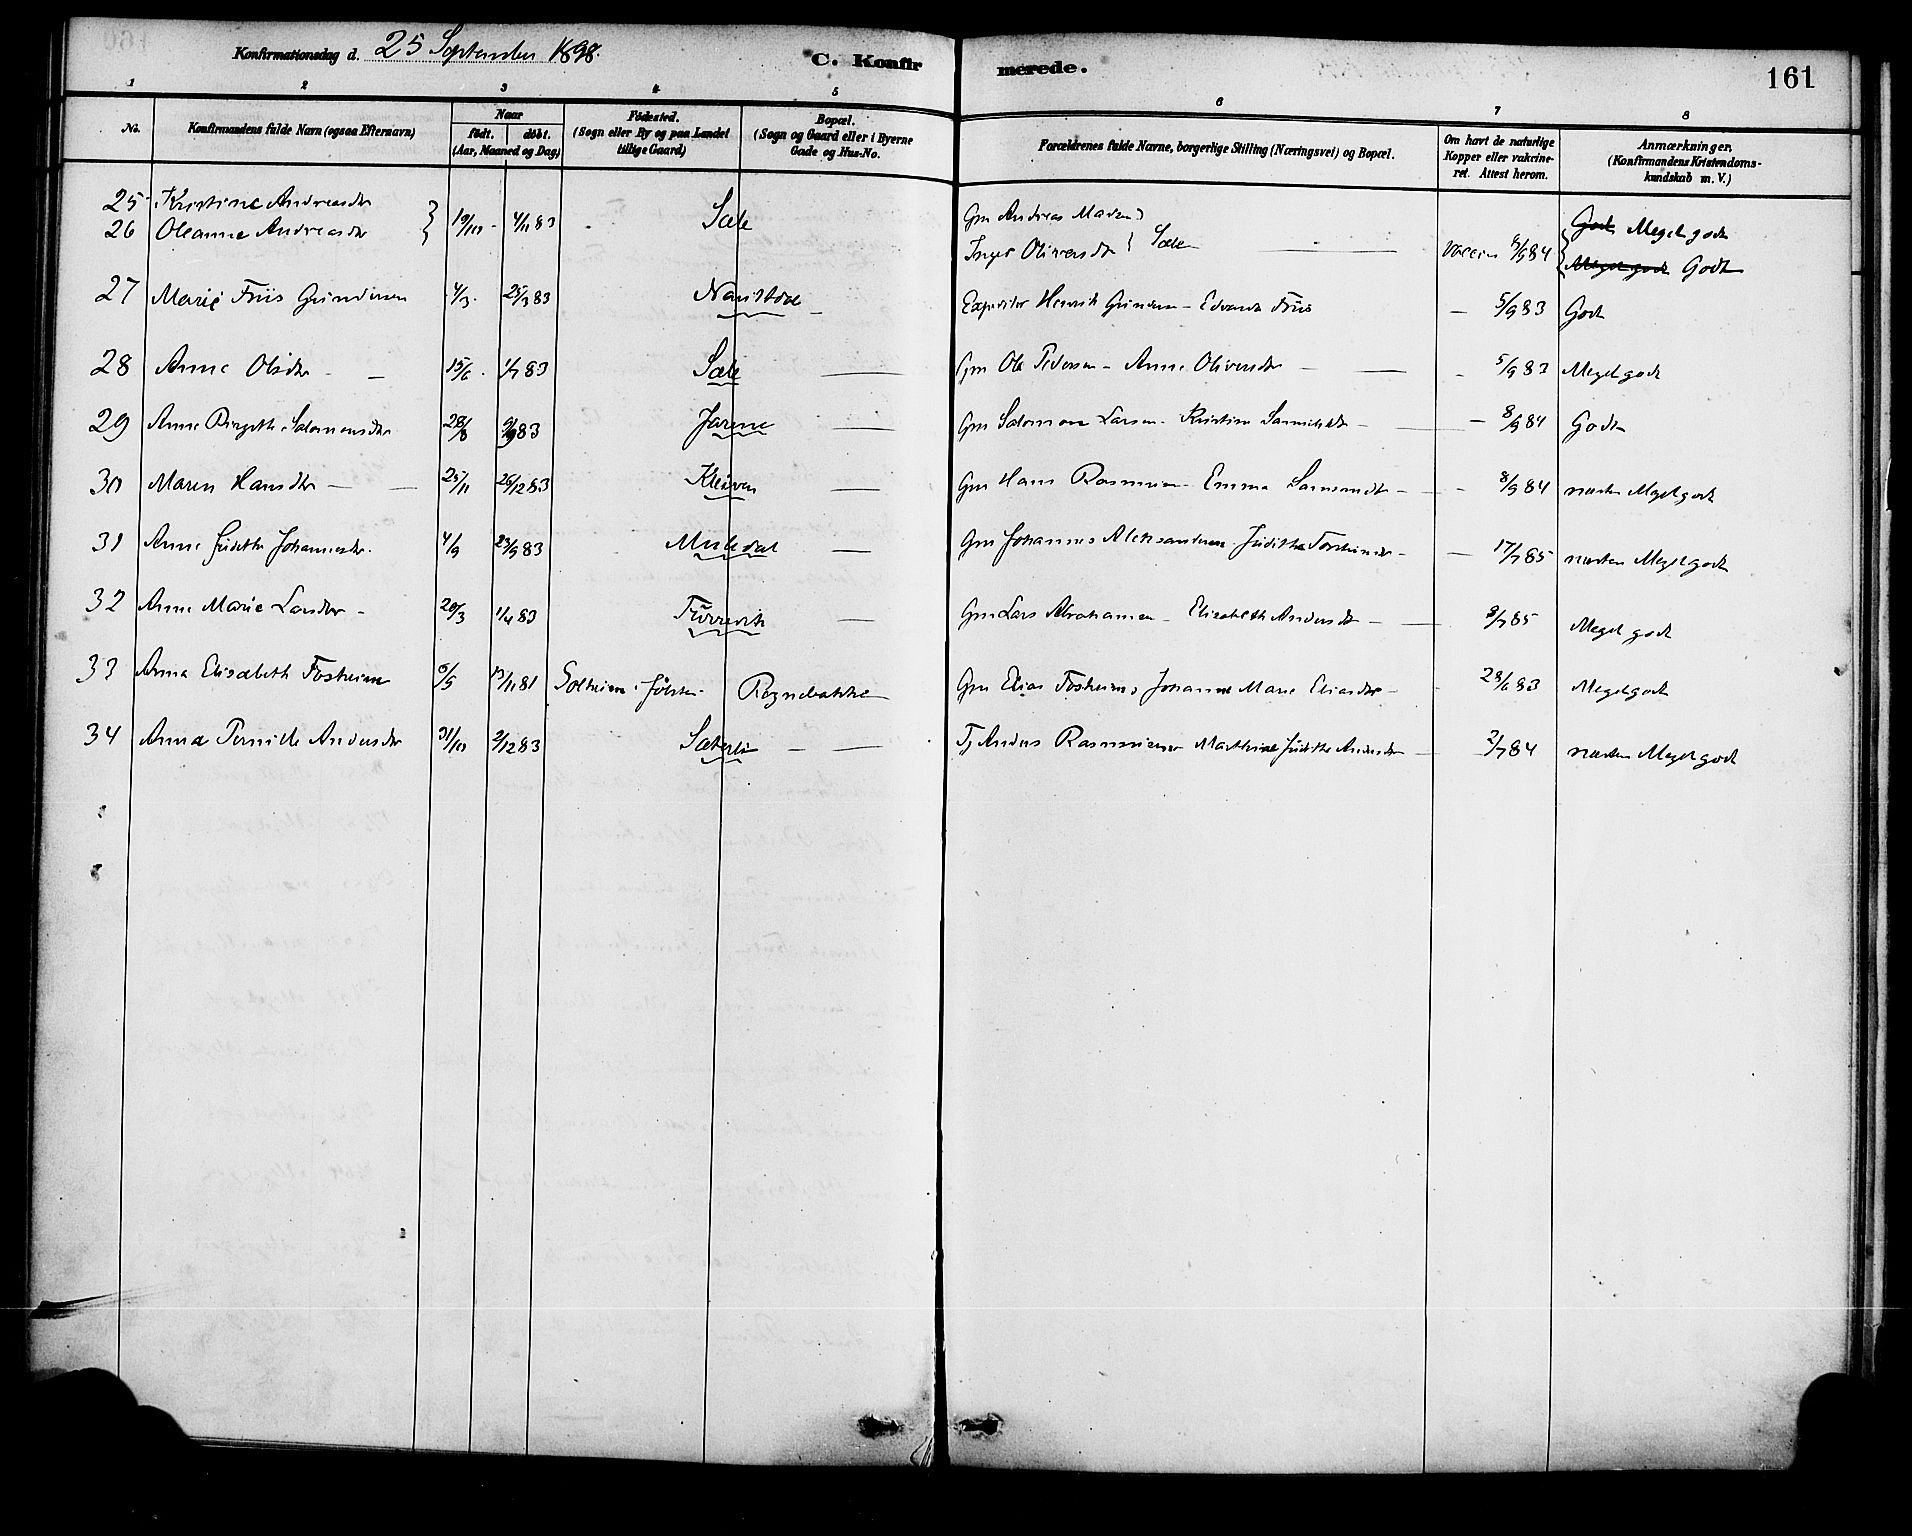 Konfirmationsdag d. 25 September 1898.
C. Konfirmerede.
161
1 2 3 4 5 6 7 8
No.
Konfirmandens fulde Navn (ogsaa Efternavn)
Naar
født. døbt.
(Aar, Maaned og Dag)
Fødested.
(Sogn eller By og paa Landet
tillige Gaard)
Bopæl.
(Sogn og Gaard eller i Byerne
Gade og Hus-No.
Forældrenes fulde Navne, borgerlige Stilling (Næringsvei) og Bopæl.
Om havt de naturlige
Kopper eller vakcine-
ret. Attest herom.
Anmærkninger.
(Konfirmandens Kristendoms-
kundskab m. V.)
25 Kristine Andreasdtr Gm Andreas Madsen Godt Meget godt
26 Oleanne Andreasdtr 19/10 - 4/11 83 Sæle Inger Oliversdtr Sæle Vaccin 8/9 84 Meget godt Godt
27 Marie Friis Gundersen 4/3 25/3 83 Naustdal Expeditør Henrik Gundersen - Edvarda Friis — 5/9 83 Godt
28 Anne Olsdtr 15/6 1/7 83 Sæle — Gm Ole Pedersen - Anne Oliversdtr — 5/9 83 Meget godt
29 Anne Birgitte Salomonsdtr 28/8 9/9 83 Jarene — Gm Salomon Larsen - Kristine Samuelsdtr — 8/9 84 Godt
30 Maren Hansdtr 25/11 26/12 83 Kleiven — Gm Hans Rasmussen - Emma — 8/9 84 næsten Meget godt
31 Anne Judithe Johannesdtr. 4/9 23/9 83 — Gm Johannes Aleksandersen - Judithe — 17/7 85 næsten Meget godt
32 Anne Marie Larsdtr - 20/3 1/4 83 — Gm Lars Abrahamsen - Elisabeth Andersdtr — 8/7 85 Meget godt
33 Anna Elisabeth Fosheim 6/9 13/11 81 Solheim i Jølster Rognebakke Gm Elias Fosheim, Johanne Marie Eliasdtr - 28/6 83 Meget godt
34 Anna Pernille Andersdtr 31/10 2/12 83 Sæterli — Tj Anders Rasmussen Marthine Judithe Andersdtr — 2/7 84 næsten Meget godt